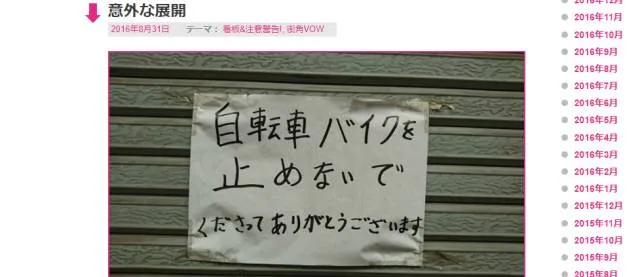 意外な展開
2016年8月31日 テーマ： 看板&注意警告!, 街角VOW
自転車 バイクを
止めないで
くださってありがとうございます
2016年11月
2016年10月
2016年9月
2016年8月
2016年7月
2016年6月
2016年5月
2016年4月
2016年3月
2016年2月
2016年1月
2015年12月
2015年11月
2015年10月
2015年9月
2015年8月